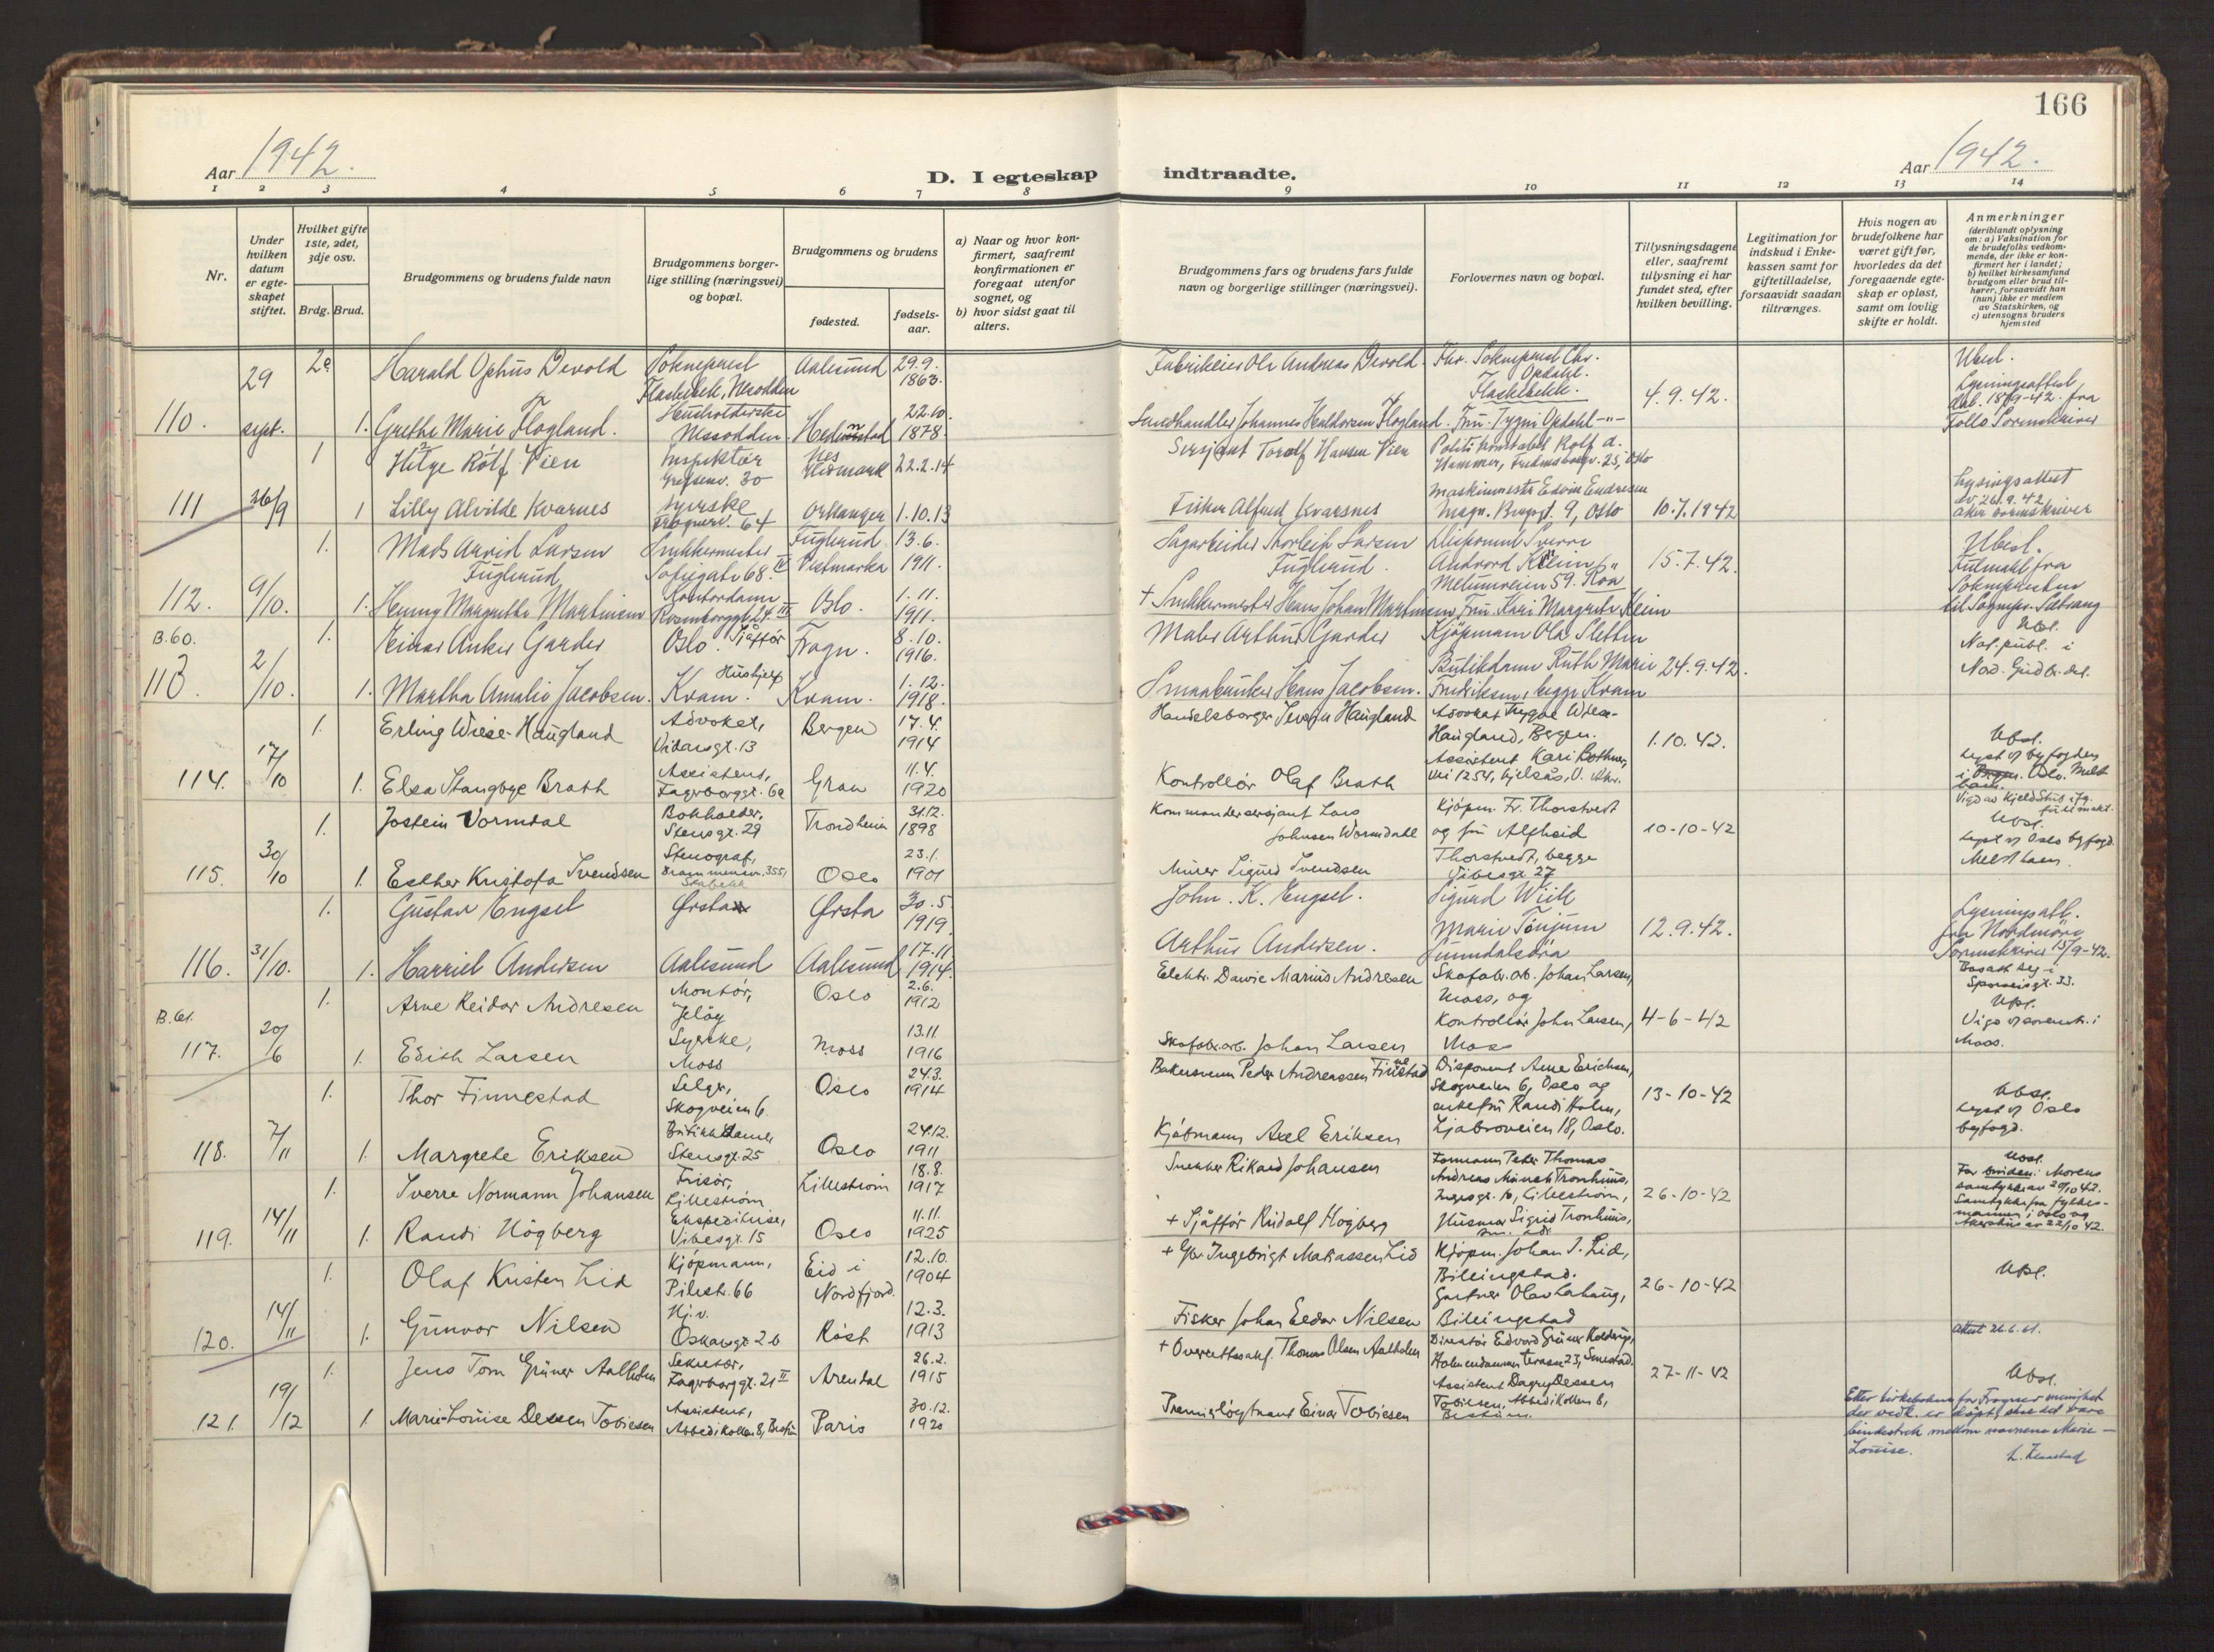 166
Aar 1942.
D. I egteskap indtraadte.
Aar 1942.
1 2 3 4 5 6 7 8 9 10 11 12 13 14
Nr.
Under hvilken datum er egte-skapet stiftet.
Hvilket gifte 1ste, 2det, 3dje osv.
Brdg. Brud.
Brudgommens og brudens fulde navn
Brudgommens borger-lige stilling (næringsvei) og bopæl.
Brudgommens og brudens
fødested.
fødsels-aar.
a) Naar og hvor kon-firmert, saafremt konfirmationen er foregaat utenfor sognet, og
b) hvor sidst gaat til alters.
Brudgommens fars og brudens fars fulde navn og borgerlige stillinger (næringsvei).
Forlovernes navn og bopæl.
Tillysningsdagene eller, saafremt tillysning ei har fundet sted, efter hvilken bevilling.
Legitimation for indskud i Enke-kassen samt for giftetilladelse, forsaavidt saadan tiltrænges.
Hvis nogen av brudefolkene har været gift før, hvorledes da det foregaaende egte-skap er opløst, samt om lovlig skifte er holdt.
Anmerkninger
(deriblandt oplysning om: a) Vaksination for de brudefolks vedkom-mende, der ikke er kon-firmert her i landet; b) hvilket kirkesamfund brudgom eller brud til-hører, forsaavidt han (hun) ikke er medlem av Statskirken, og c) utensogns bruders hjemsted
110. 29 sept. 2a
Harald Ophus Devold Sokneprest Flaskebekk, Nesodden Aalesund 29.9. 1863.
Fabrikeier Ole Andreas Devold. Fhv. Sokneprest Chr. Opdahl. Flaskebekk. 4.9.42.
1. Grethe Marie Flogland. Husholderske Nesodden. 22.10. 1878.
Johannes Haldorsen Flogland. Fru Opdahl -"-
Ubesl. Lysningsattest fra Follo Sorenskriver
111 30/9 1
Helge Rolf Vien Inspektør Grefsenv. 30 Nes Hedmark 22.2.14
Sersjant Toralf Hansen Vien Politikonstabel Rolf A. Hammer, Oslo
1 Lilly Alvilde Kvarnes syerske 64 Orkanger 1.10.13
Fisker Alfred Kvarsnes Maskinmester Edvin Endresen 9, Oslo 10.7.1942
Lysingsattest av 26.9.42 Aker sorenskriver
112. 9/10. 1.
Mads Arvid Larsen Fuglerud Snekkermester Sofiegate 68. IV Fuglerud Vestmarka 13.6. 1911.
Sagarbeider Thorleif Larsen Fuglerud. Disponent Sverre 15.7.42.
1. Henny Margrethe Martinsen Kontordame III Oslo. 1.11. 1911.
+ Snekkermester Hans Johan Martinsen Fru Kari Margrete Kleim
Ubesl. Fullmakt fra Soknepresten
B.60.
113. 2/10. 1.
Einar Anker Garder Oslo. Sjåfför Frogn. 8.10. 1916.
Maler Arthur Garder Kjöpmann Ola Sletten
1. Martha Amalie Jacobsen. Hushjelp Kvam. Kvam. 1.12. 1918.
Smaabruker Hans Jacobsen. Butikdame Ruth Marie Fredriksen, begge Kvam 24.9.42.
Ubsl. Not. publ. i Nord. Gudbr.dal.
114. 17/10 1.
Erling Wiese-Haugland Advokat, Vidarsgt. 13 Bergen 17.4. 1914
Handelsborger Severin Haugland Advokat Trygve Wiese-Haugland, Bergen. 1.10.42.
1. Elsa Stangbye Brath Assistent, Fagerborggt. 6a Gran 11.4. 1920
Kontrollör Olaf Brath Assistent Kari Bothner, Vei 1254, Kjelsås, V. Aker.
Ubsl. Lyst v/ byfogden i Oslo.
115. 30/10 1.
Jostein Vormdal Bokholder, Stensgt. 29 Trondheim 31.12. 1898
Kommandersersjant Lars Johnsen Wormdahl Kjöpm. Fr. Thorstvedt og fru Alfheid Thorstvedt, begge Vibesgt. 27 10-10-42
1. Esther Kristofa Svendsen Stenograf, Drammensv. 355, Stabekk Oslo 23.1. 1901
Murer Sigurd Svendsen
Ubsl. Lyst v/ Oslo byfogd.
116. 31/10. 1.
Gustav Engset Ørsta Ørsta 30.5 1919.
John. K. Engset. Sigurd Wiik
1. Harriet Andersen Aalesund Aalesund 17.11 1914.
Arthur Andersen. Marie Tönjum Sunndalsöra 12.9.42.
Lysningsatt. fra Nordmöre Sorenskriver 15/9-42.
B.61.
117. 20/6 1.
Arne Reidar Andresen Montör, Jelöy Oslo 2.6. 1912
Elektr. Davie Marius Andresen Skofabr.arb. Johan Larsen, Moss, og Kontrollör John Larsen, Moss 4-6-42
1. Edith Larsen Syerske, Moss Moss 13.11 1916
Skofabr.arb. Johan Larsen
Bosatt beg. i Sporveisgt. 33. Ubsl. Vigd v/ sorenskr. i Moss.
118. 7/11 1.
Thor Finnestad Selger, Skogveien 6. Oslo 24.3. 1914
Bakersvenn Peder Andreassen Finnestad Disponent Arne Erichsen, Skogveien 6, Oslo og enkefru Randi Holm, Ljabroveien 18, Oslo. 13-10-42
1. Margrete Eriksen Butikkdame, Stensgt. 25 Oslo 24.12. 1911
Kjöbmann Axel Eriksen
Ubsl. Lyst v/ Oslo byfogd.
119. 14/11 1.
Sverre Normann Johansen Frisör, Lilleström Lilleström 18.8. 1917
Snekker Rikard Johansen Formann Peter Thomas Andreas Munch Tronhuus, Lilleström, 26-10-42
1. Randi Högberg Ekspeditrise, Vibesgt. 15 Oslo 11.11. 1925
+ Sjåfför Rudolf Högberg Husmor Sigrid Tronhuus,
Ubsl. For bruden: Morens samtykke av 20/10 42. Samtykke fra fylkes-mannen i Oslo og Akershus av 22/10 42.
120. 14/11 1.
Olaf Kristen Lid Kjöpmann, Pilestr. 66 Eid i Nordfjord. 12.10. 1904
+ Gbr. Ingebrigt Matiassen Lid Kjöpm. Johan I. Lid, Billingstad. Gartner Olav Lahaug, Billingstad 26-10-42
1. Gunvor Nilsen Hj.v. Oskarsgt. 26 Röst 12.3. 1913
Fisker Johan Eedor Nilsen
Ubsl.
Attest 26.6.61.
121. 19/12 1.
Jens Tom Grüner Aalholm Sekretær, Fagerborggt. 21 II Arendal 26.2. 1915
+ Overrettssakf. Thomas Olsen Aalholm Direktör Edvard Grüner Holmendammen terasse 23, Smestad. Assistent Dagny Dessen Tobiesen, Abbedikollen 8, Bestum. 27-11-42
1. Marie-Louise Dessen Tobiesen Assistent, Abbedikollen 8, Bestum Paris 30.12. 1920
Premierlöytnant Einar Tobiesen
Ubsl.
Etter kirkeboken for Frogner menighet der vedk. er döpt, skal det være bindestrek mellom navnene Marie-Louise.